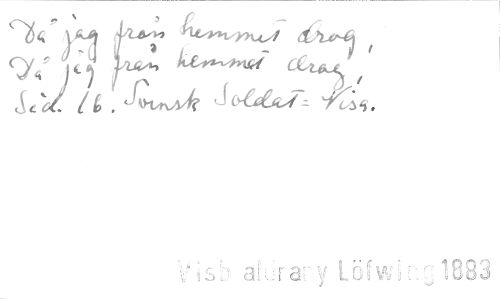 Då jag från hemmet drog,
Då jag från hemmet drog,
Sid. 16. Svensk Soldat=Visa.
Visb aldrary Löfwing 1883